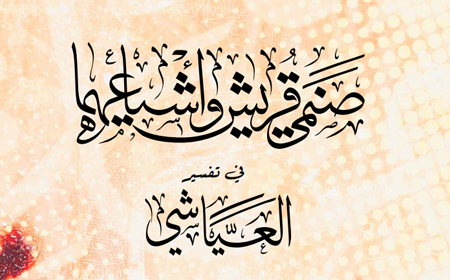 صَنَمَي قُرَيش وأشياعِهِما
في تفسير
العَيَّاشي